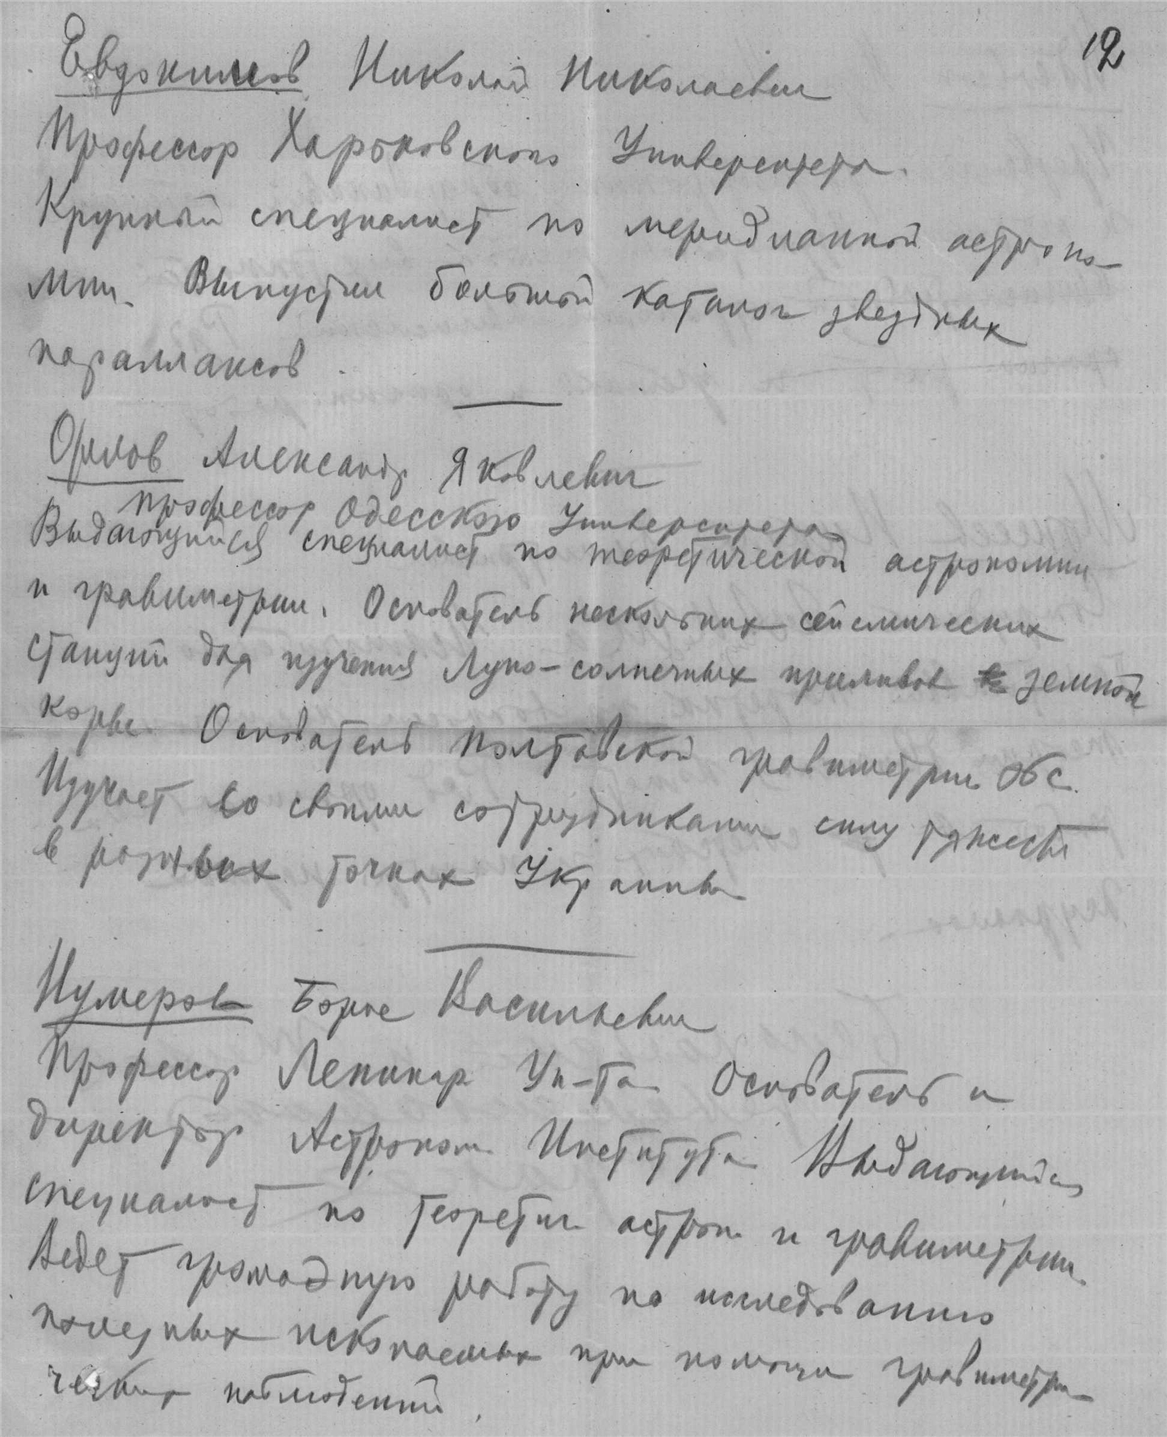 12
Евдокимов Николай Николаевич
Профессор Харьковского Университета.
Крупный специалист по меридианной астроно-
мии. Выпустил большой каталог звездных
параллаксов.
Орлов Александр Яковлевич
профессор Одесского Университета
Выдающийся специалист по теоретической астрономии
и гравиметрии. Основатель нескольких сейсмических
станций для изучения Луно-солнечных приливов земной
коры. Основатель Полтавской гравиметрич. Обс.
Изучает со своими сотрудниками силу тяжести
в разных точках Украины
Нумеров Борис Васильевич
Профессор Ленингр Ун-та Основатель и
директор Астроном. Института Выдающийся
специалист по теоретич. астрон. и гравиметрии.
Ведет громадную работу по исследованию
полезных ископаемых при помощи гравиметри-
ческих наблюдений.